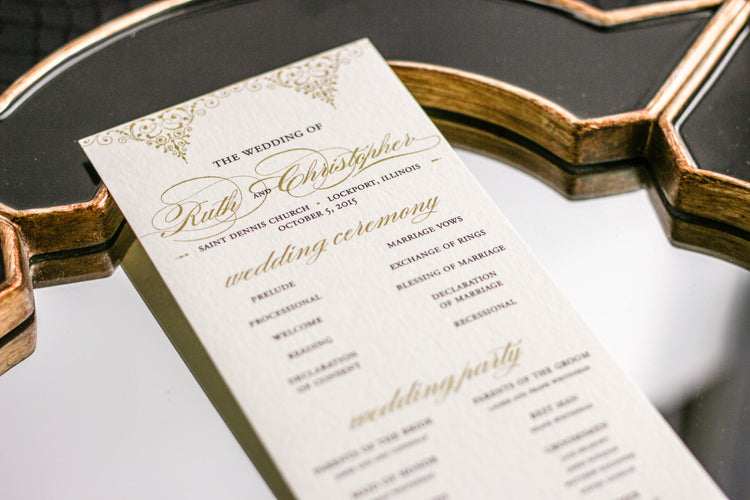 THE WEDDING OF
Ruth AND Christopher
SAINT DENNIS CHURCH • LOCKPORT, ILLINOIS
OCTOBER 5, 2015
wedding ceremony
PRELUDE
PROCESSIONAL
WELCOME
READING
DECLARATION
OF CONSENT
MARRIAGE VOWS
EXCHANGE OF RINGS
BLESSING OF MARRIAGE
DECLARATION
OF MARRIAGE
RECESSIONAL
wedding party
PARENTS OF THE BRIDE
MAID OF HONOR
PARENTS OF THE GROOM
BEST MAN
GROOMSMEN